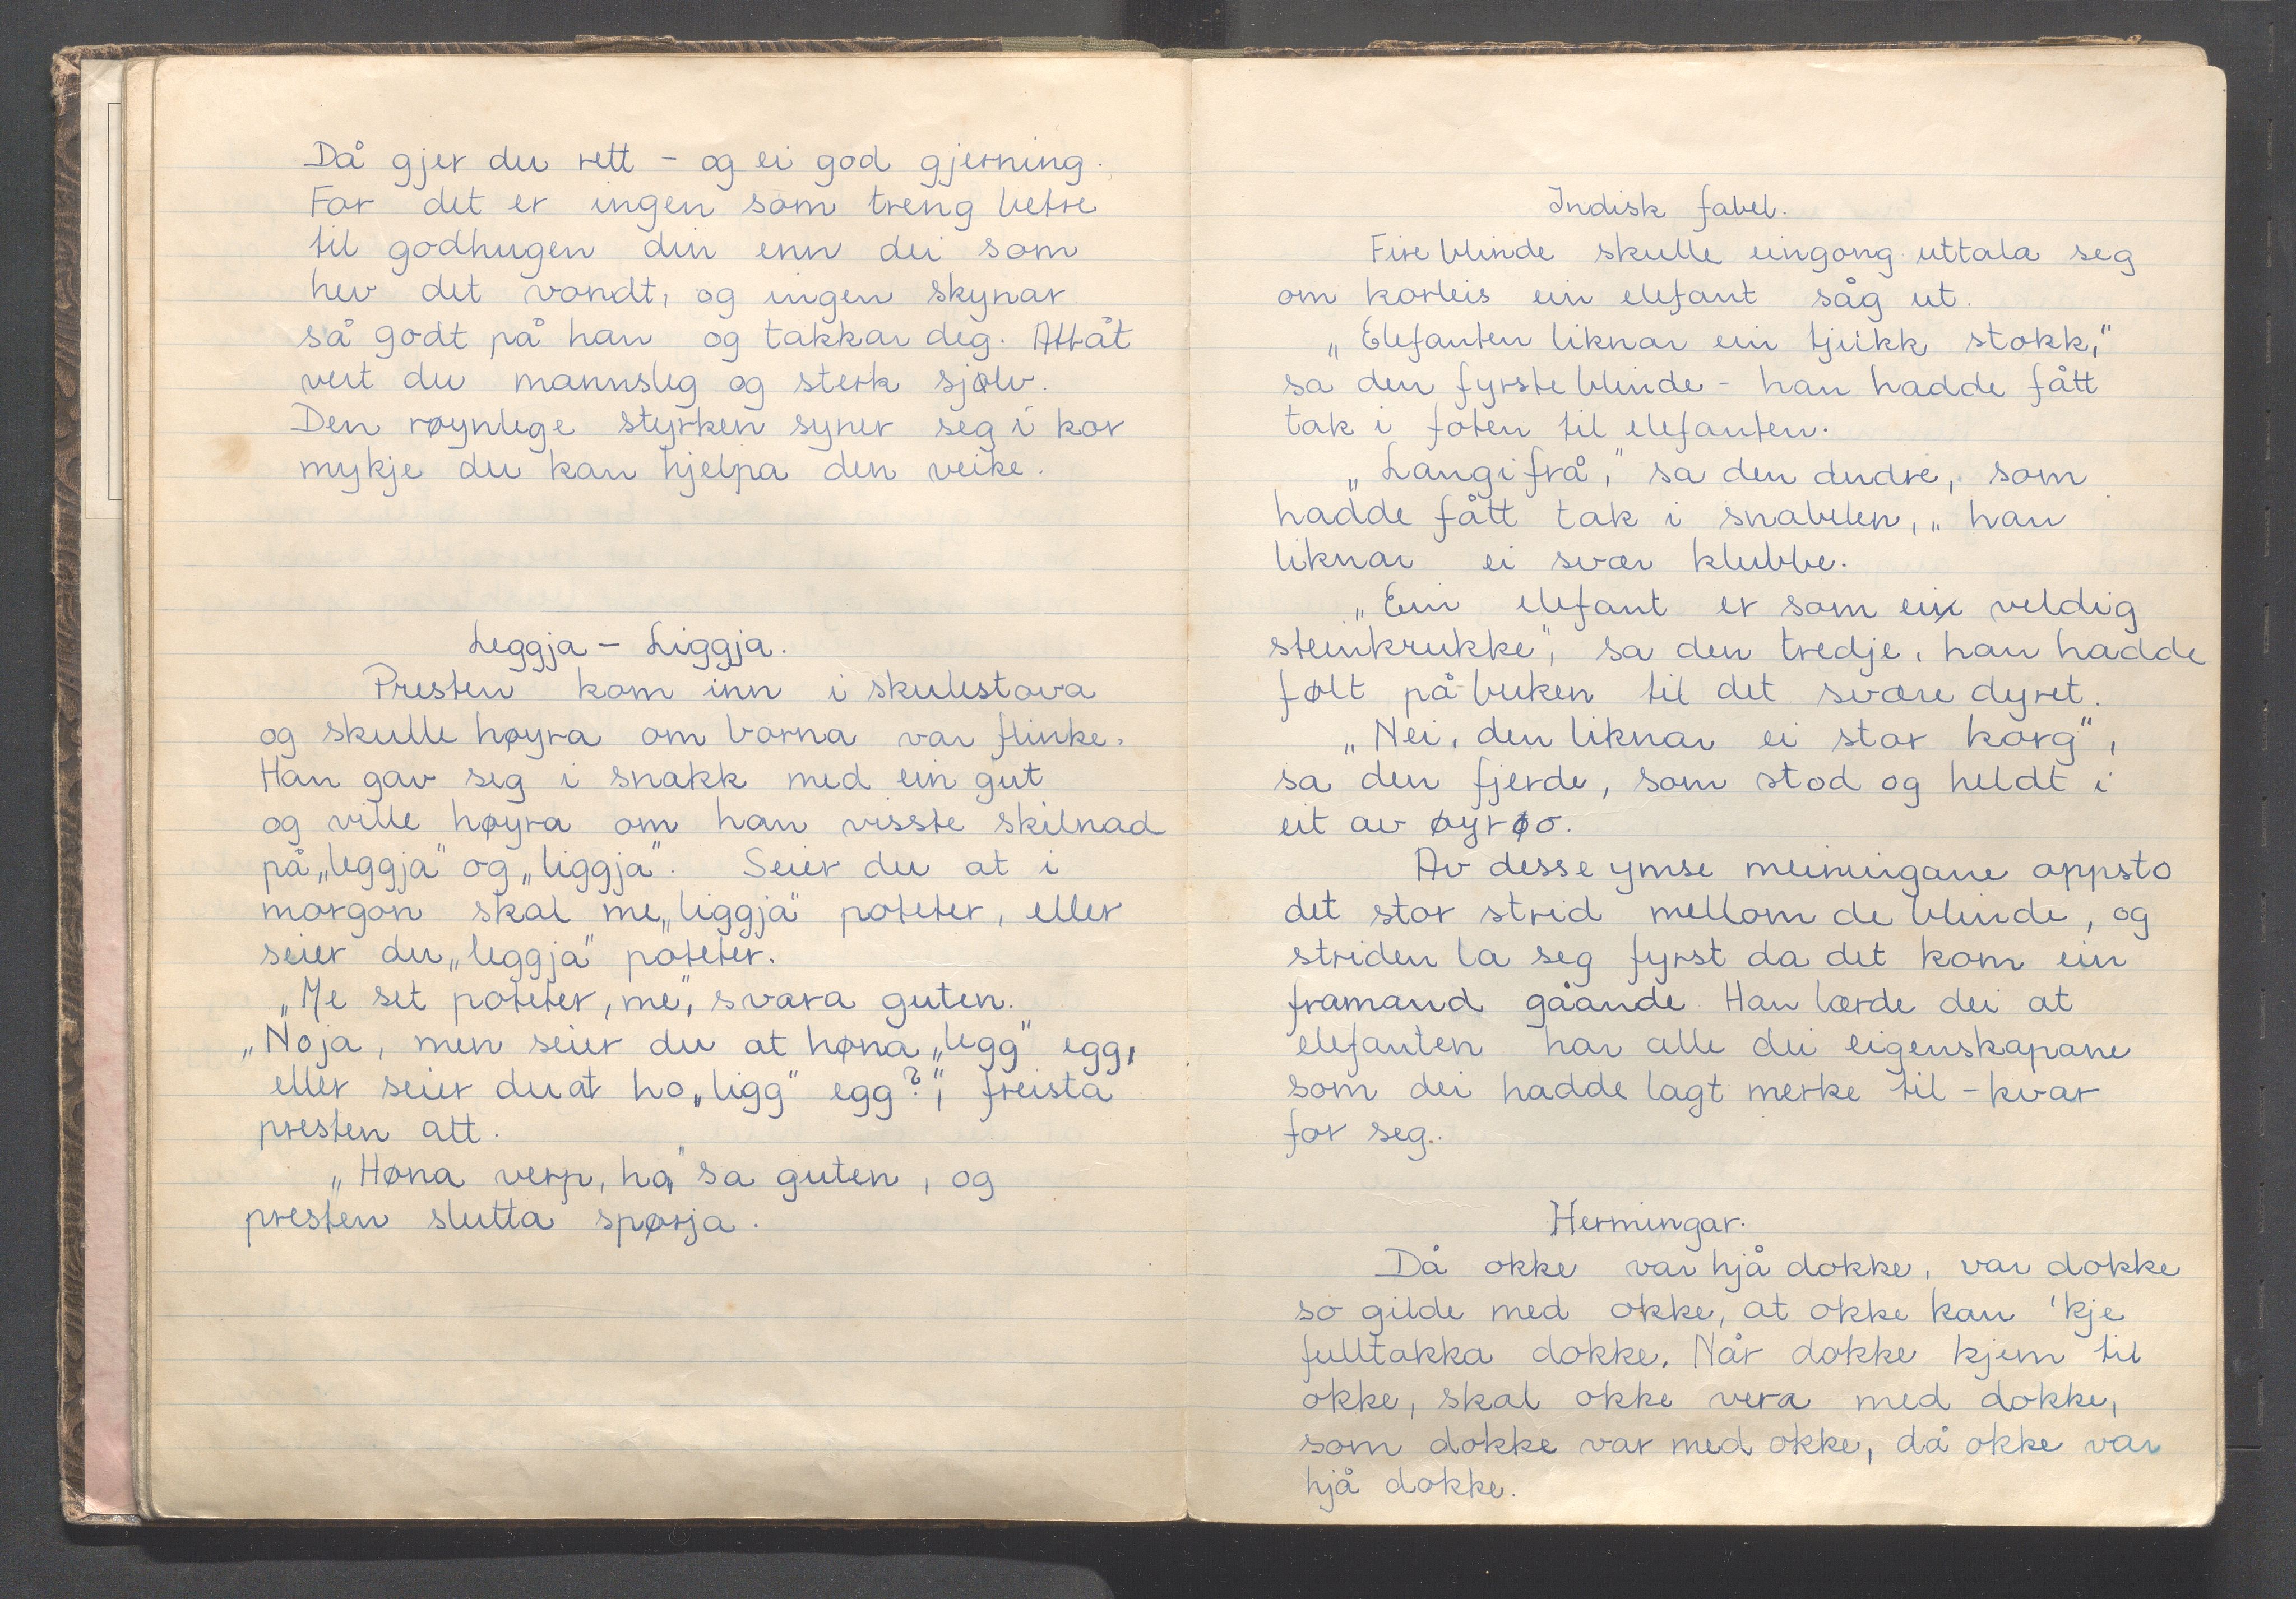 Då gjer du rett - og ei god gjerning.
For det er ingen som treng betre
til godhugen din enn dei som
hev det vondt, og ingen skynar
så godt på han og takkar deg. Attåt
vert du mannsleg og sterk sjølv.
Den røynlege styrken syner seg i kor
mykje du kan hjelpa den veike.
Leggja - Liggja.
Presten kom inn i skulestova
og skulle høyra om borna var flinke.
Han gav seg i snakk med ein gut
og ville høyra om han visste skilnad
på „leggja" og „liggja". Seier du at i
morgon skal me „liggja" poteter, eller
seier du „leggja" poteter.
„Me set poteter, me", svara guten.
„Noja, men seier du at høna „legg" egg,
eller seier du at ho „ligg" egg?", freista
presten att.
„Høna verp, ho," sa guten, og
presten slutta spørja.
Indisk fabel.
Fire blinde skulle eingong uttala seg
om korleis ein elefant såg ut.
„Elefanten liknar ein tjukk stokk,"
sa den fyrste blinde - han hadde fått
tak i foten til elefanten.
„Langifrå," sa den andre, som
hadde fått tak i snabelen, „han
liknar ei svær klubbe.
„Ein elefant er som ein veldig
steinkrukke", sa den tredje, han hadde
følt på buken til det svære dyret.
„Nei, den liknar ei stor korg",
sa den fjerde, som stod og heldt i
eit av øyro.
Av desse ymse meiningane oppsto
det stor strid mellom de blinde, og
striden la seg fyrst da det kom ein
framand gåande. Han lærde dei at
elefanten har alle dei eigenskapane
som dei hadde lagt merke til - kvar
for seg.
Hermingar.
Då okke var hjå dokke, var dokke
so gilde med okke, at okke kan 'kje
fulltakka dokke. Når dokke kjem til
okke, skal okke vera med dokke,
som dokke var med okke, då okke var
hjå dokke.